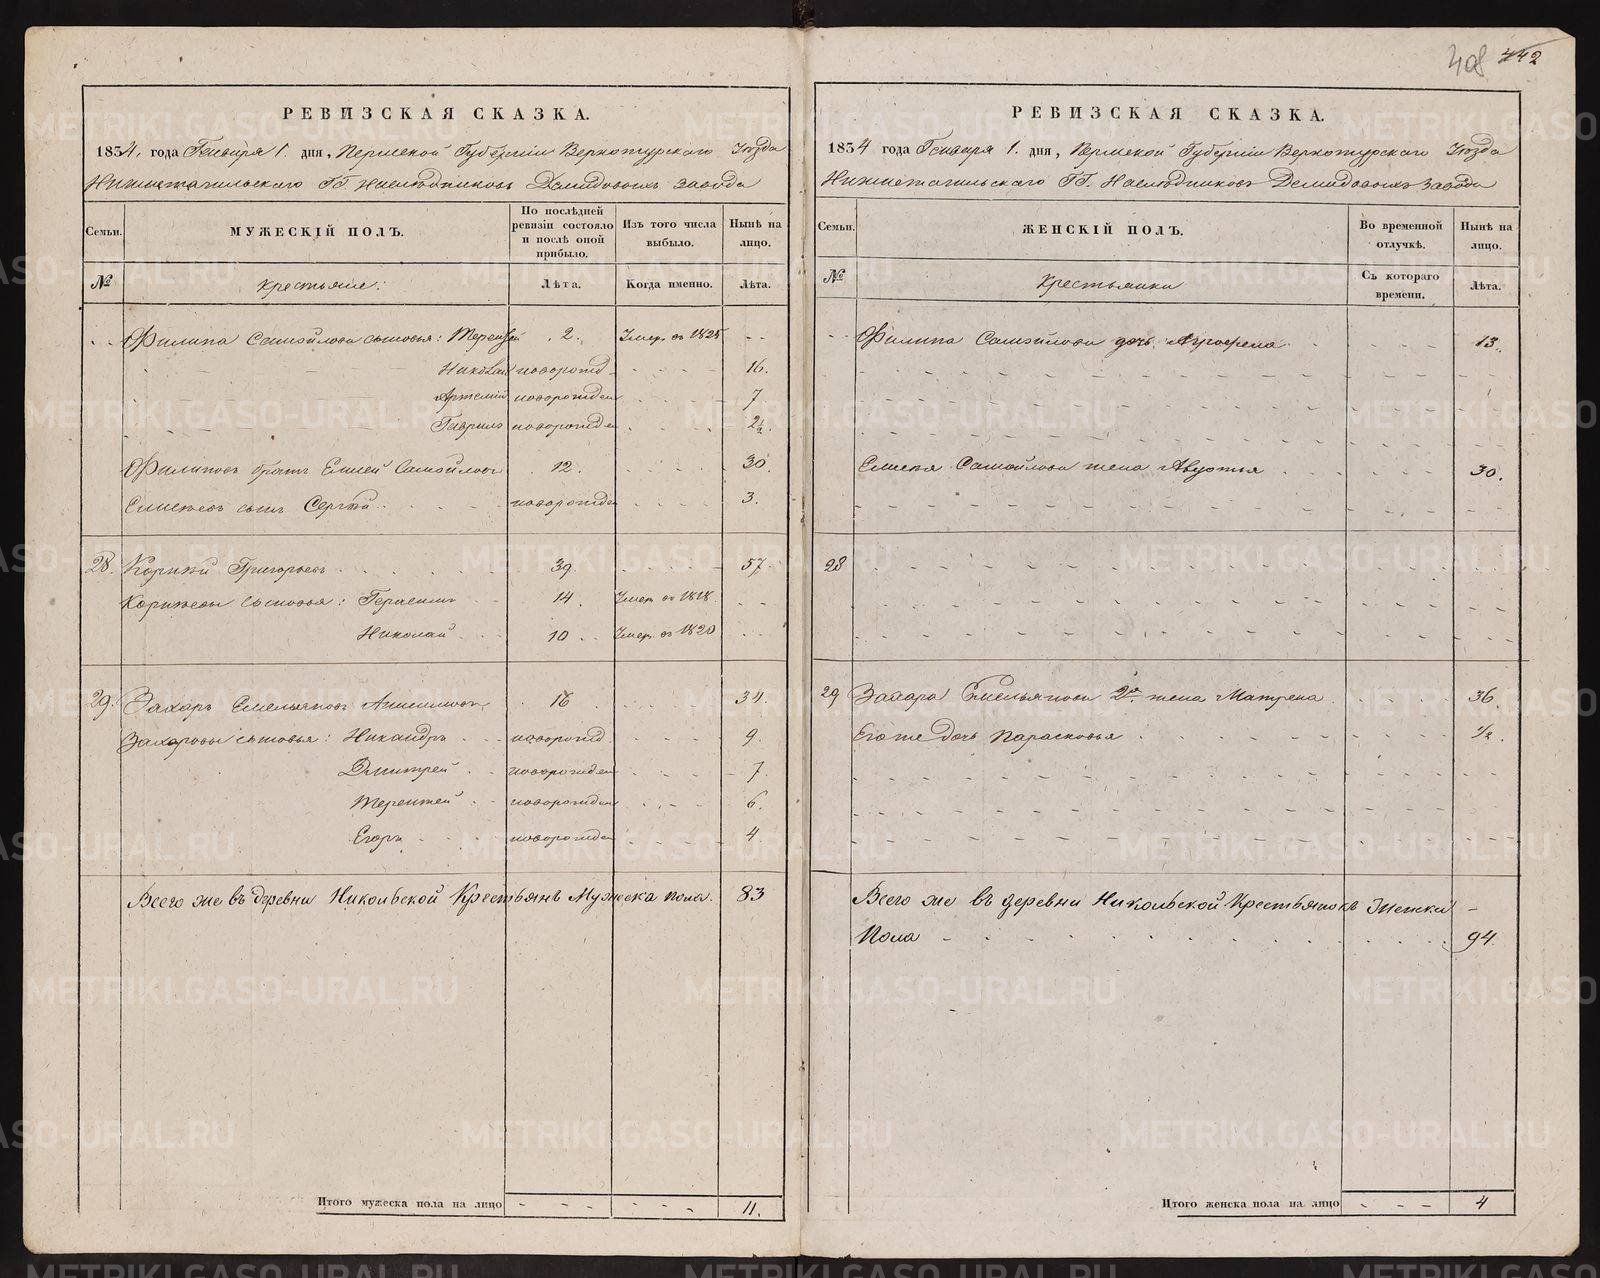 408 442
РЕВИЗСКАЯ СКАЗКА.
1834, года Генваря 1. дня, Пермской Губернiи Верхотурскаго Уѣзда
Нижнетагильскаго ГГ. Наслѣдниковъ Демидовыхъ завода
Семьи. МУЖЕСКIЙ ПОЛЪ. По послѣдней ревизiи состояло и послѣ оной прибыло. Изъ того числа выбыло. Нынѣ на лицо.
№ Крестьяне: Лѣта. Когда именно. Лѣта.
Филипа Самойлова сыновья: Терентей 2. Умер. въ 1825 - -
Николай новорожд. 16.
Артемiй новорожден 7
Гаврило новорожден 2 1/2.
Филиповъ братъ Елисей Самойловъ 12. 30.
Елисеевъ сынъ Сергѣй новорожден 3.
28. Корнѣй Григорьевъ 39. 57.
Корнѣевы сыновья: Герасимъ 14. Умер. въ 1818. - -
Николай 10. Умер. въ 1820 - -
29. Захаръ Емельяновъ 16 34.
Захаровы сыновья: Никандръ новорожд. 9.
Дмитрей новорожден 7.
Терентей новорожден 6.
Егоръ новорожден 4
Всего же въ деревни Никольской Крестьянъ Мужеска пола. 83
Итого мужеска пола на лицо - - - - - - 11.
РЕВИЗСКАЯ СКАЗКА.
1834 года Генваря 1. дня, Пермской Губернiи Верхотурскаго Уѣзда
Нижнетагильскаго ГГ. Наслѣдниковъ Демидовыхъ завода
Семьи. ЖЕНСКIЙ ПОЛЪ. Во временной отлучкѣ. Нынѣ на лицо.
№ Крестьянки Съ котораго времени. Лѣта.
Филипа Самойлова дочь Агрофена 13.
Елисея Самойлова жена Авдотья 30.
28
29 Захара Емельянова 2я жена Матрена 36.
Его же дочь Парасковья 1/2.
Всего же въ деревни Никольской Крестьянокъ Женска
Пола 94.
Итого женска пола на лицо - - - 4
METRIKI.GASO-URAL.RU